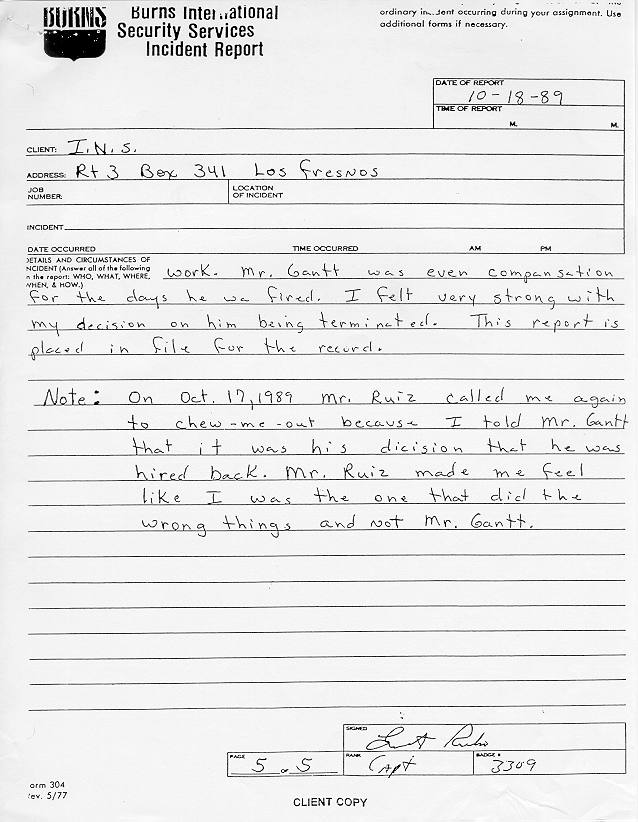 BURNS
Burns International
Security Services
Incident Report
ordinary incident occurring during your assignment. Use
additional forms if necessary.
DATE OF REPORT
10-18-89
TIME OF REPORT
M. M.
CLIENT: I.N.S.
ADDRESS: Rt 3 Box 341 Los Fresnos
JOB
NUMBER:
LOCATION
OF INCIDENT
INCIDENT
DATE OCCURRED TIME OCCURRED AM PM
DETAILS AND CIRCUMSTANCES OF
INCIDENT (Answer all of the following
in the report: WHO, WHAT, WHERE,
WHEN, & HOW.)
work. Mr. Gantt was even compansation
for the days he wa fired. I felt very strong with
my decision on him being terminated. This report is
placed in file for the record.
Note: On Oct. 17, 1989 Mr. Ruiz called me again
to chew-me-out because I told Mr. Gantt
that it was his dicision that he was
hired back. Mr. Ruiz made me feel
like I was the one that did the
wrong things and not Mr. Gantt.
SIGNED
PAGE
5 OF 5
RANK
Capt
BADGE #
3309
orm 304
rev. 5/77
CLIENT COPY